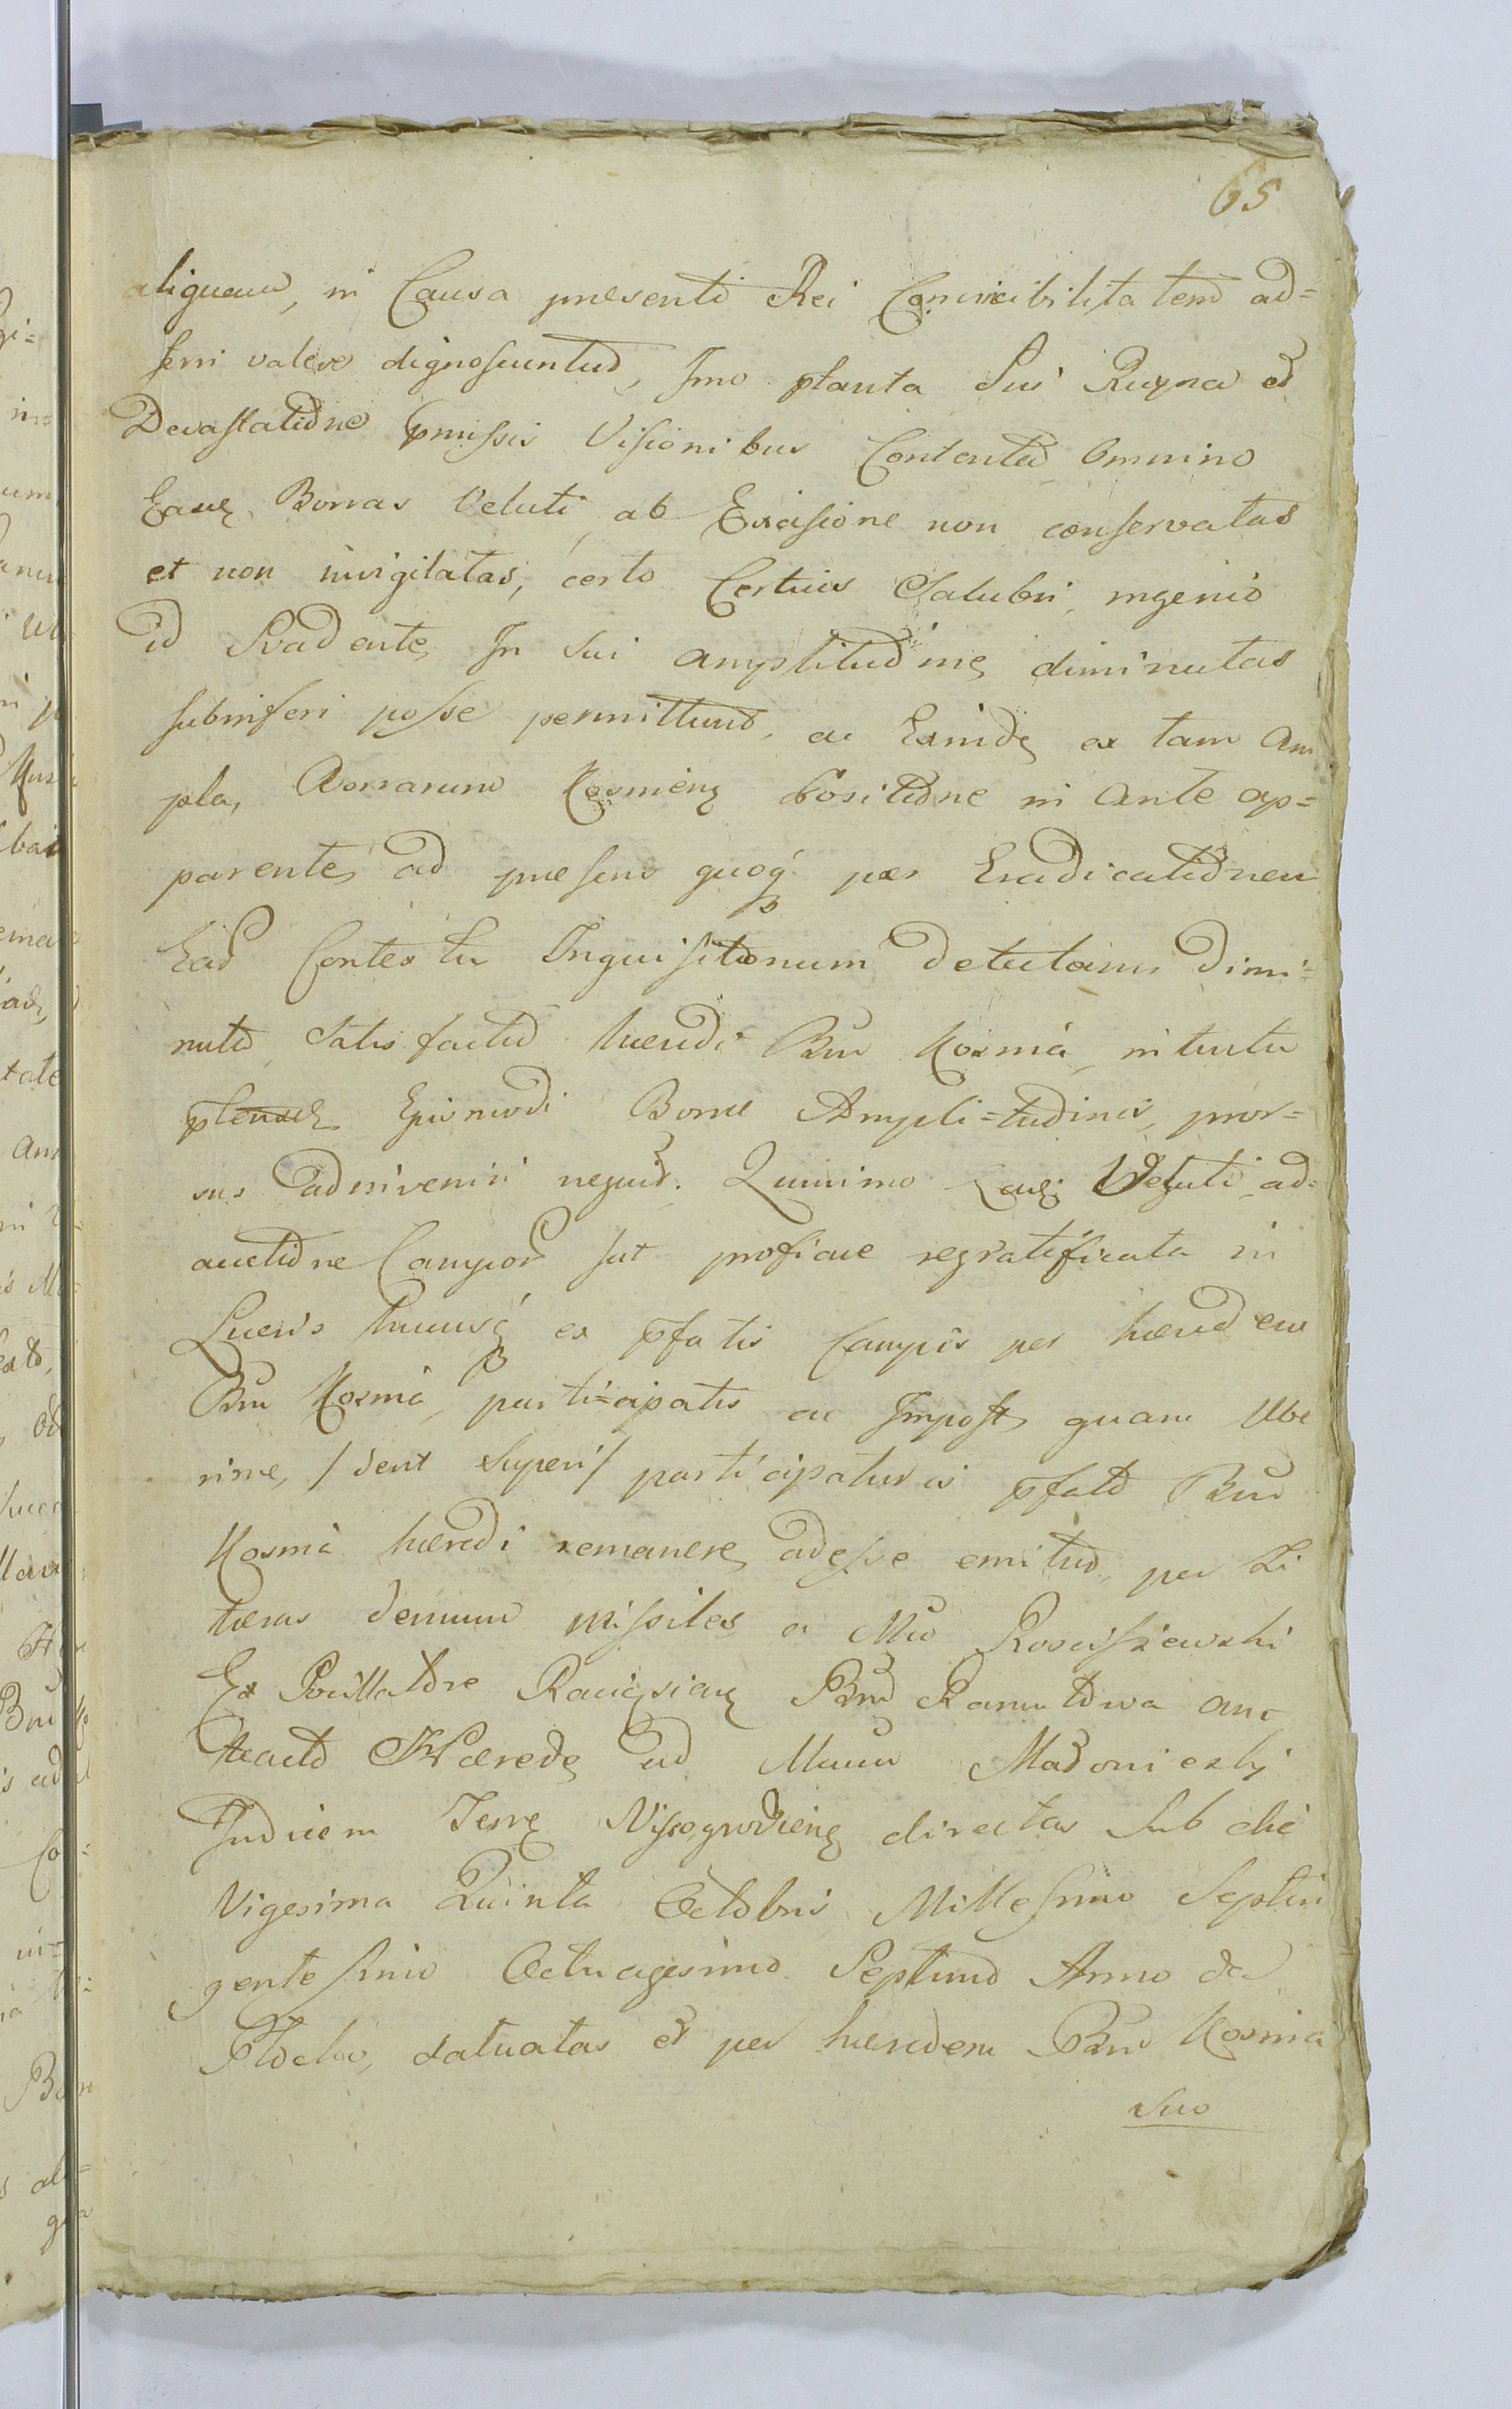 65
aliquam, in Causa presenti Rei Convincibilitatem ad=
ferri valere dignoscuntur, Imo planta Sui Ruyna et
Devastatione pmissis Visionibus Contenta Omnino
Easq Borras Veluti, ab Excisione non conservatas
et non invigilatas, certo Certius Salubri, ingenio
id Svadente, In Sui amplitudine diminutas
subinferi posse permittunt, ac Exinde ex tam Am
pla, Borrarum Kosmieng positione in Ante ap=
parente, ad presens quoq per Eradicationem
Ead Contextu Inquisitionum detectarum dimi=
nuta, Satisfactio hæredi Bnr Kosmia, intuitu
Ejusmodi Borræ Ampli=tudinis, pror=
sus adinveniri nequit. Quinimo Eaq Veluti ad=
auctione Campor sat proficue regratificata in
Lucris huiusq ex pfatis Campis per hæredem
Bnr Kosmia, parti=cipatis ac Impost, quam Ube
rime, / dent Superi / participaturis pfato Bnr
Kosmia hæredi remanere, adesse enititur, per Li
teras demum missiles a Mco Rosciszewski
Ex Racigsiang Bnr Ramutowa ant
eacto Hærede ad Mcum Madonieski
Judicem Terrę Wyszogrodieng directas Sub die
Vigesima Quinta Octobris Millesimo Septin
gentesimo Octuagesimo Septimo Anno de
Plocko, datuatas et per hæredem Bnr Kosmia
Suo